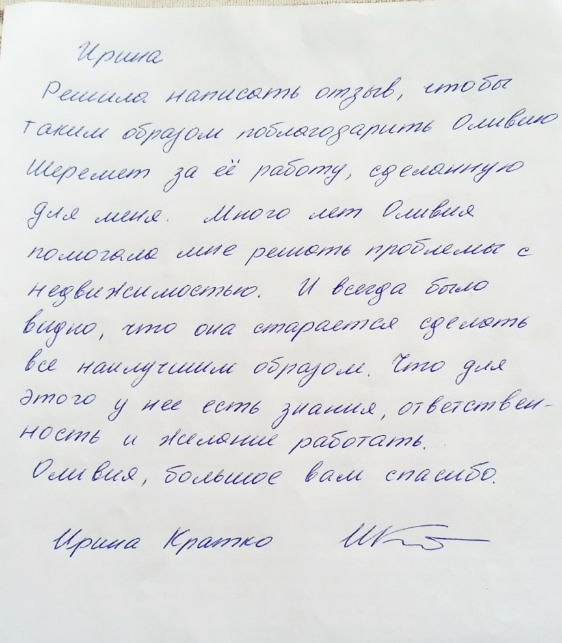 Ирина
Решила написать отзыв, чтобы
таким образом поблагодарить Оливию
Шеремет за её работу, сделанную
для меня. Много лет Оливия
помогала мне решать проблемы с
недвижимостью. И всегда было
видно, что она старается сделать
все наилучшим образом. Что для
этого у нее есть знания, ответствен-
ность и желание работать.
Оливия, большое вам спасибо.
Ирина Кратко